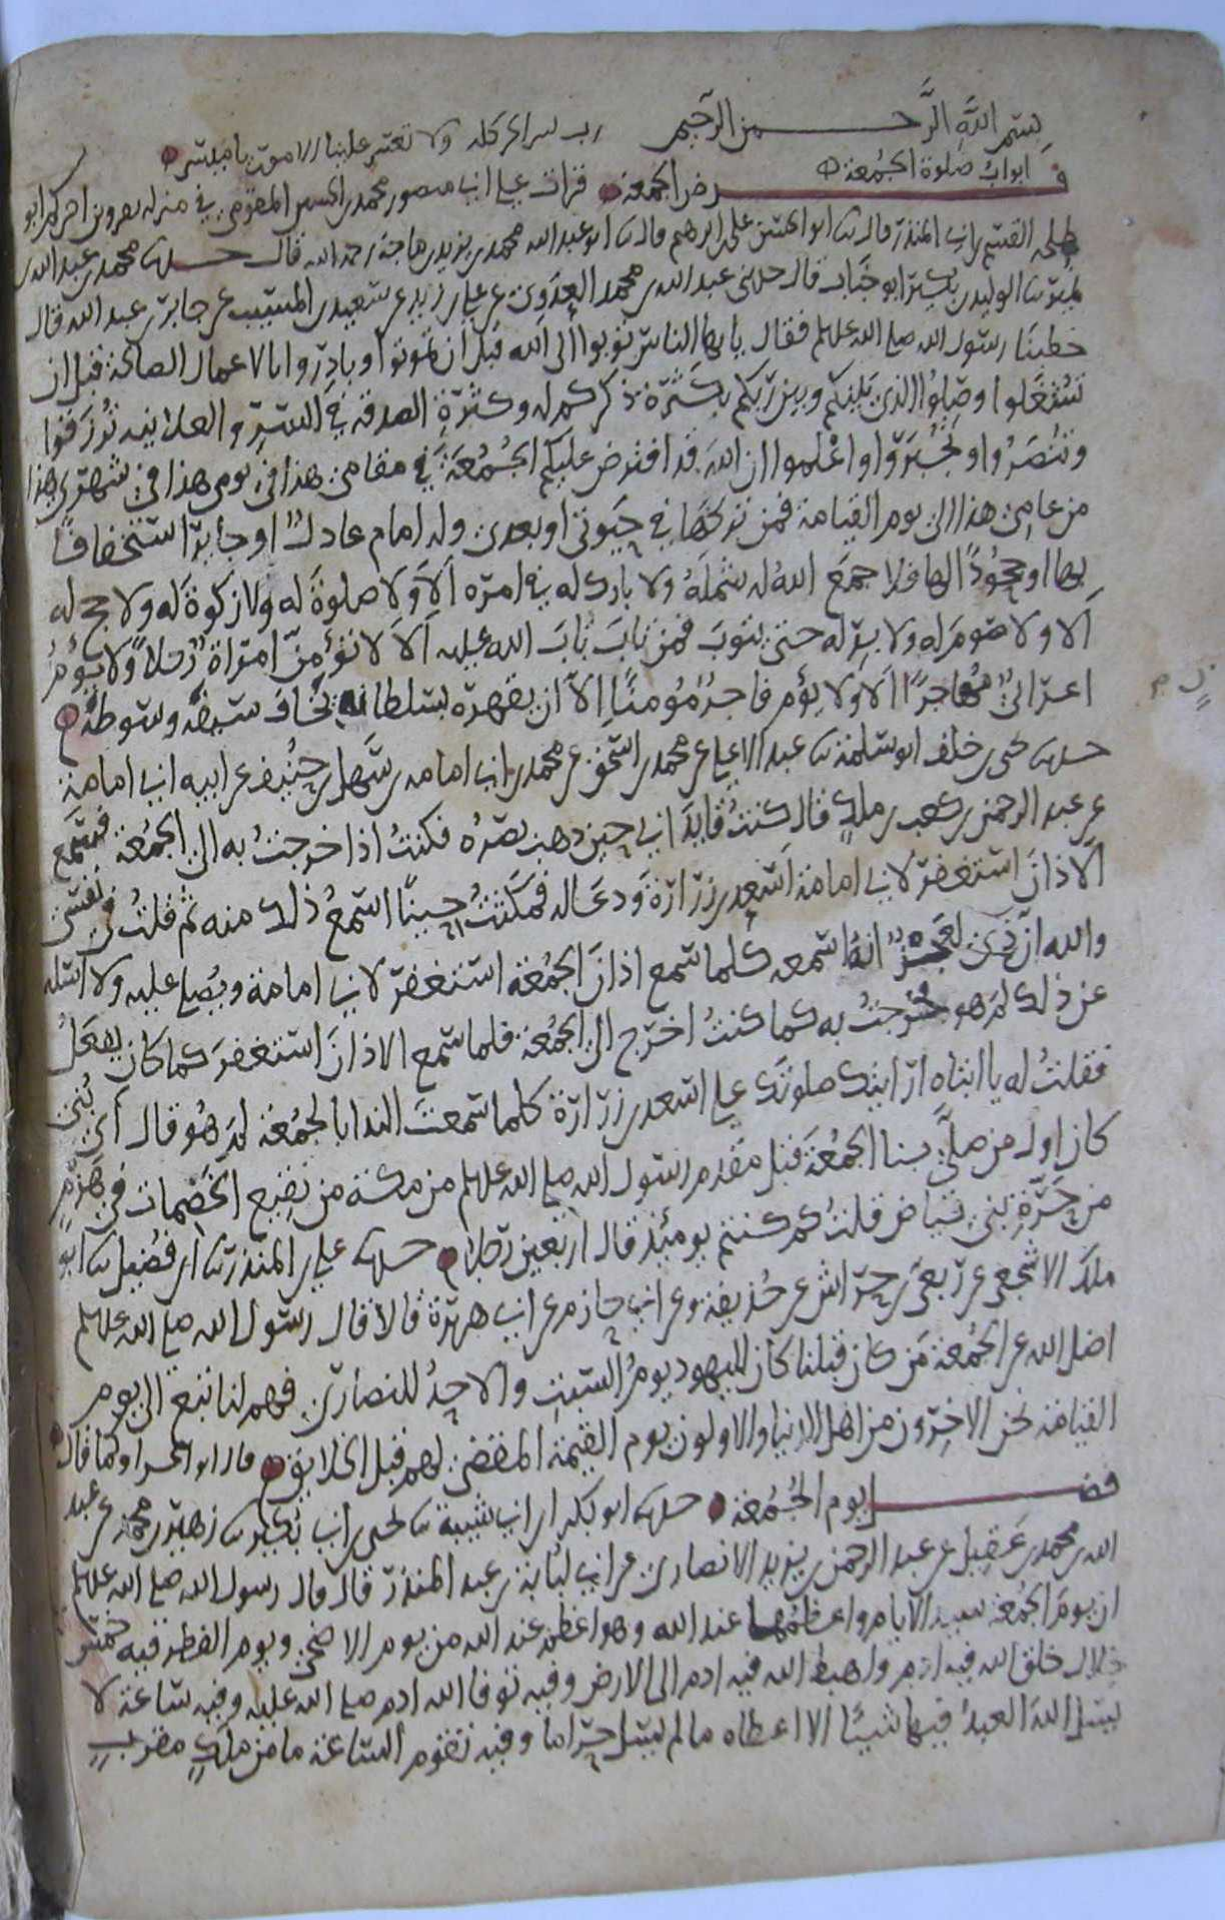 بسم الله الرحمن الرحيم رب يسر امركله ولا تعسر علينا الامور يا ميسر
ابواب صلوة الجمعة
فرض الجمعة قرات على ابي منصور محمد بن الحسين المقومي في منزله بقزوين اخبركم ابو
طلحه القسم بن ابي المنذر قال نا ابو الحسن علي بن ابرهيم قال نا ابو عبد الله محمد بن يزيد بن ماجة رحمه الله قال حدثنا محمد بن عبد الله بن
نمير نا الوليد بن بكير ابو خباب قال حدثني عبد الله بن محمد العدوي عن علي بن زيد عن سعيد بن المسيب عن جابر بن عبد الله قال
خطبنا رسول الله صلى الله عليه وسلم فقال يا ايها الناس توبوا الى الله قبل ان تموتوا وبادروا بالاعمال الصالحة قبل ان
تشتغلوا وصلوا الذي بينكم وبين ربكم بكثرة ذكركم له وكثرة الصدقة في السر والعلانيه ترزقوا
وتنصروا وتجبروا واعلموا ان الله قد افترض عليكم الجمعة في مقامي هذا في يومي هذا في شهري هذا
من عامي هذا الى يوم القيامة فمن تركها في حيوتي او بعدي وله امام عادل او جاير استخفافا
بها او جحودا لها فلا جمع الله له شمله ولا بارك له في امره الا ولا صلوة له ولا زكوة له ولا حج له
الا ولا صوم له ولا بر له حتى يتوب فمن تاب تاب الله عليه الا لا تؤمن امراة رجلا ولا يؤم
اعرابي مهاجرا الا ولا يؤم فاجر مؤمنا الا ان يقهره بسلطان يخاف سيفه وسوطه
حدثنا يحيى بن خلف ابو سلمة نا عبد الاعلى عن محمد بن اسحق عن محمد بن ابي امامه بن سهل بن حنيف عن ابيه ابي امامة
عن عبد الرحمن بن كعب بن ملك قال كنت قايد ابي حين ذهب بصره فكنت اذا خرجت به الى الجمعة فسمع
الاذان استغفر لابي امامة اسعد بن زرارة ودعا له فمكثت حينا اسمع ذلك منه ثم قلت في نفسي
والله ان ذي لعجز انه اسمعه كلما سمع اذان الجمعة استغفر لابي امامة ويصلي عليه ولا اسله
عن ذلك لم هو فخرجت به كما كنت اخرج الى الجمعة فلما سمع الاذان استغفر كما كان يفعل
فقلت له يا ابتاه ارايتك صلوتك على اسعد بن زرارة كلما سمعت الندا بالجمعة لم هو قال اي بني
كان اول من صلى بنا الجمعة قبل مقدم رسول الله صلى الله عليه وسلم من مكة من نقيع الخضمات في هزم
من حرة بني بياضة قلت كم كنتم يومئذ قال اربعين رجلا حدثنا علي بن المنذر نا ابن فضيل نا ابو
ملك الاشجعي عن ربعي بن حراش عن حذيفة وعن ابي حازم عن ابي هريرة قالا قال رسول الله صلى الله عليه وسلم
اضل الله عن الجمعة من كان قبلنا كان لليهود يوم السبت والاحد للنصارى فهم لنا تبع الى يوم
القيامة نحن الاخرون من اهل الدنيا والاولون يوم القيمة المقضي لهم قبل الخلايق قال ابو الحسن او كما قال
فضل يوم الجمعة حدثنا ابو بكر بن ابي شيبة نا يحيى بن ابي بكير نا زهير بن محمد عن عبد
الله بن محمد بن عقيل عن عبد الرحمن بن يزيد الانصاري عن ابي لبابة بن عبد المنذر قال قال رسول الله صلى الله عليه وسلم
ان يوم الجمعة سيد الايام واعظمها عند الله وهو اعظم عند الله من يوم الاضحى ويوم الفطر فيه خمس
خلال خلق الله فيه ادم واهبط الله فيه ادم الى الارض وفيه توفا الله ادم صلى الله عليه وفيه ساعة لا
يسل الله العبد فيها شيئا الا اعطاه ما لم يسل حراما وفيه تقوم الساعة ما من ملك مقرب